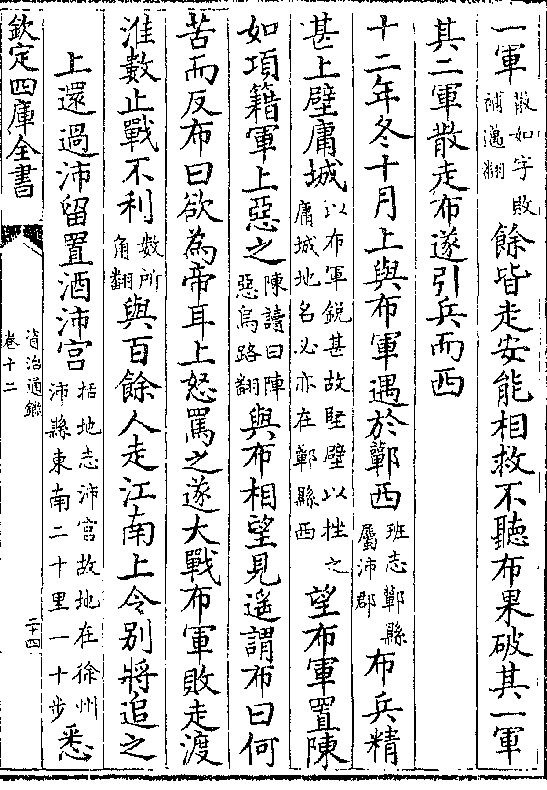 一軍散如字敗補邁翻餘皆走安能相救不聽布果破其一軍
其二軍散走布遂引兵而西
十二年冬十月上與布軍遇於蘄西班志蘄縣屬沛郡布兵精
甚上壁庸城以布軍銳甚故堅壁以挫之庸城地名必亦在蘄縣西望布軍置陳
如項籍軍上惡之陳讀曰陣惡烏路翻與布相望見遙謂布曰何
苦而反布曰欲為帝耳上怒罵之遂大戰布軍敗走渡
淮數止戰不利數所角翻與百餘人走江南上令别將追之
上還過沛留置酒沛宫括地志沛宫故地在徐州沛縣東南二十里一十步悉
欽定四庫全書
資治通鑑
卷十二
二十四